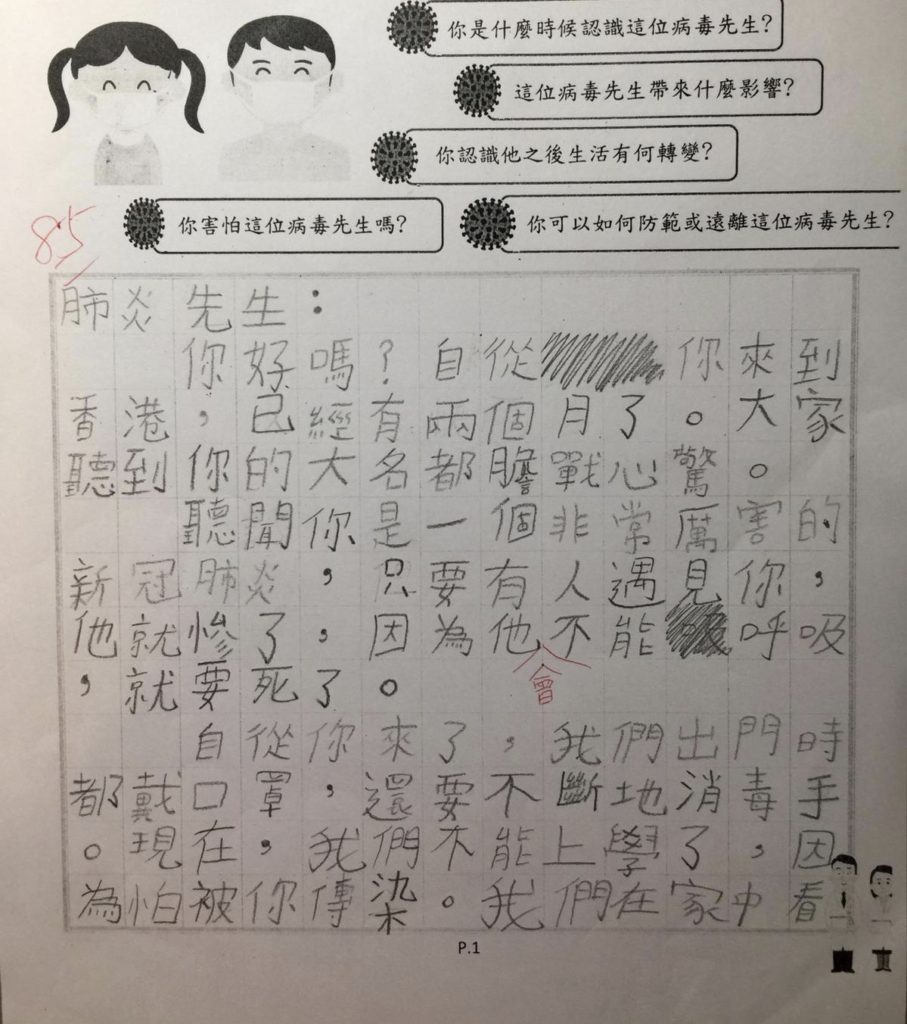 你是什麼時候認識這位病毒先生?
這位病毒先生帶來什麼影響?
你認識他之後生活有何轉變?
你害怕這位病毒先生嗎?
你可以如何防範或遠離這位病毒先生?
85
肺炎先生：
你好嗎？自從你來到
香港，已經有兩個月了。大家
聽到你的大名都膽戰心驚。
聽聞你是一個非常厲害的
新冠肺炎，只要有人遇見你，
他就慘了，因為他不能呼吸
會
，就要死了。
自從你來了，我們出門時
都戴口罩，還要不斷地消毒手
。現在，我們不能上學了，因
為怕被你傳染。我們在家中看
P.1